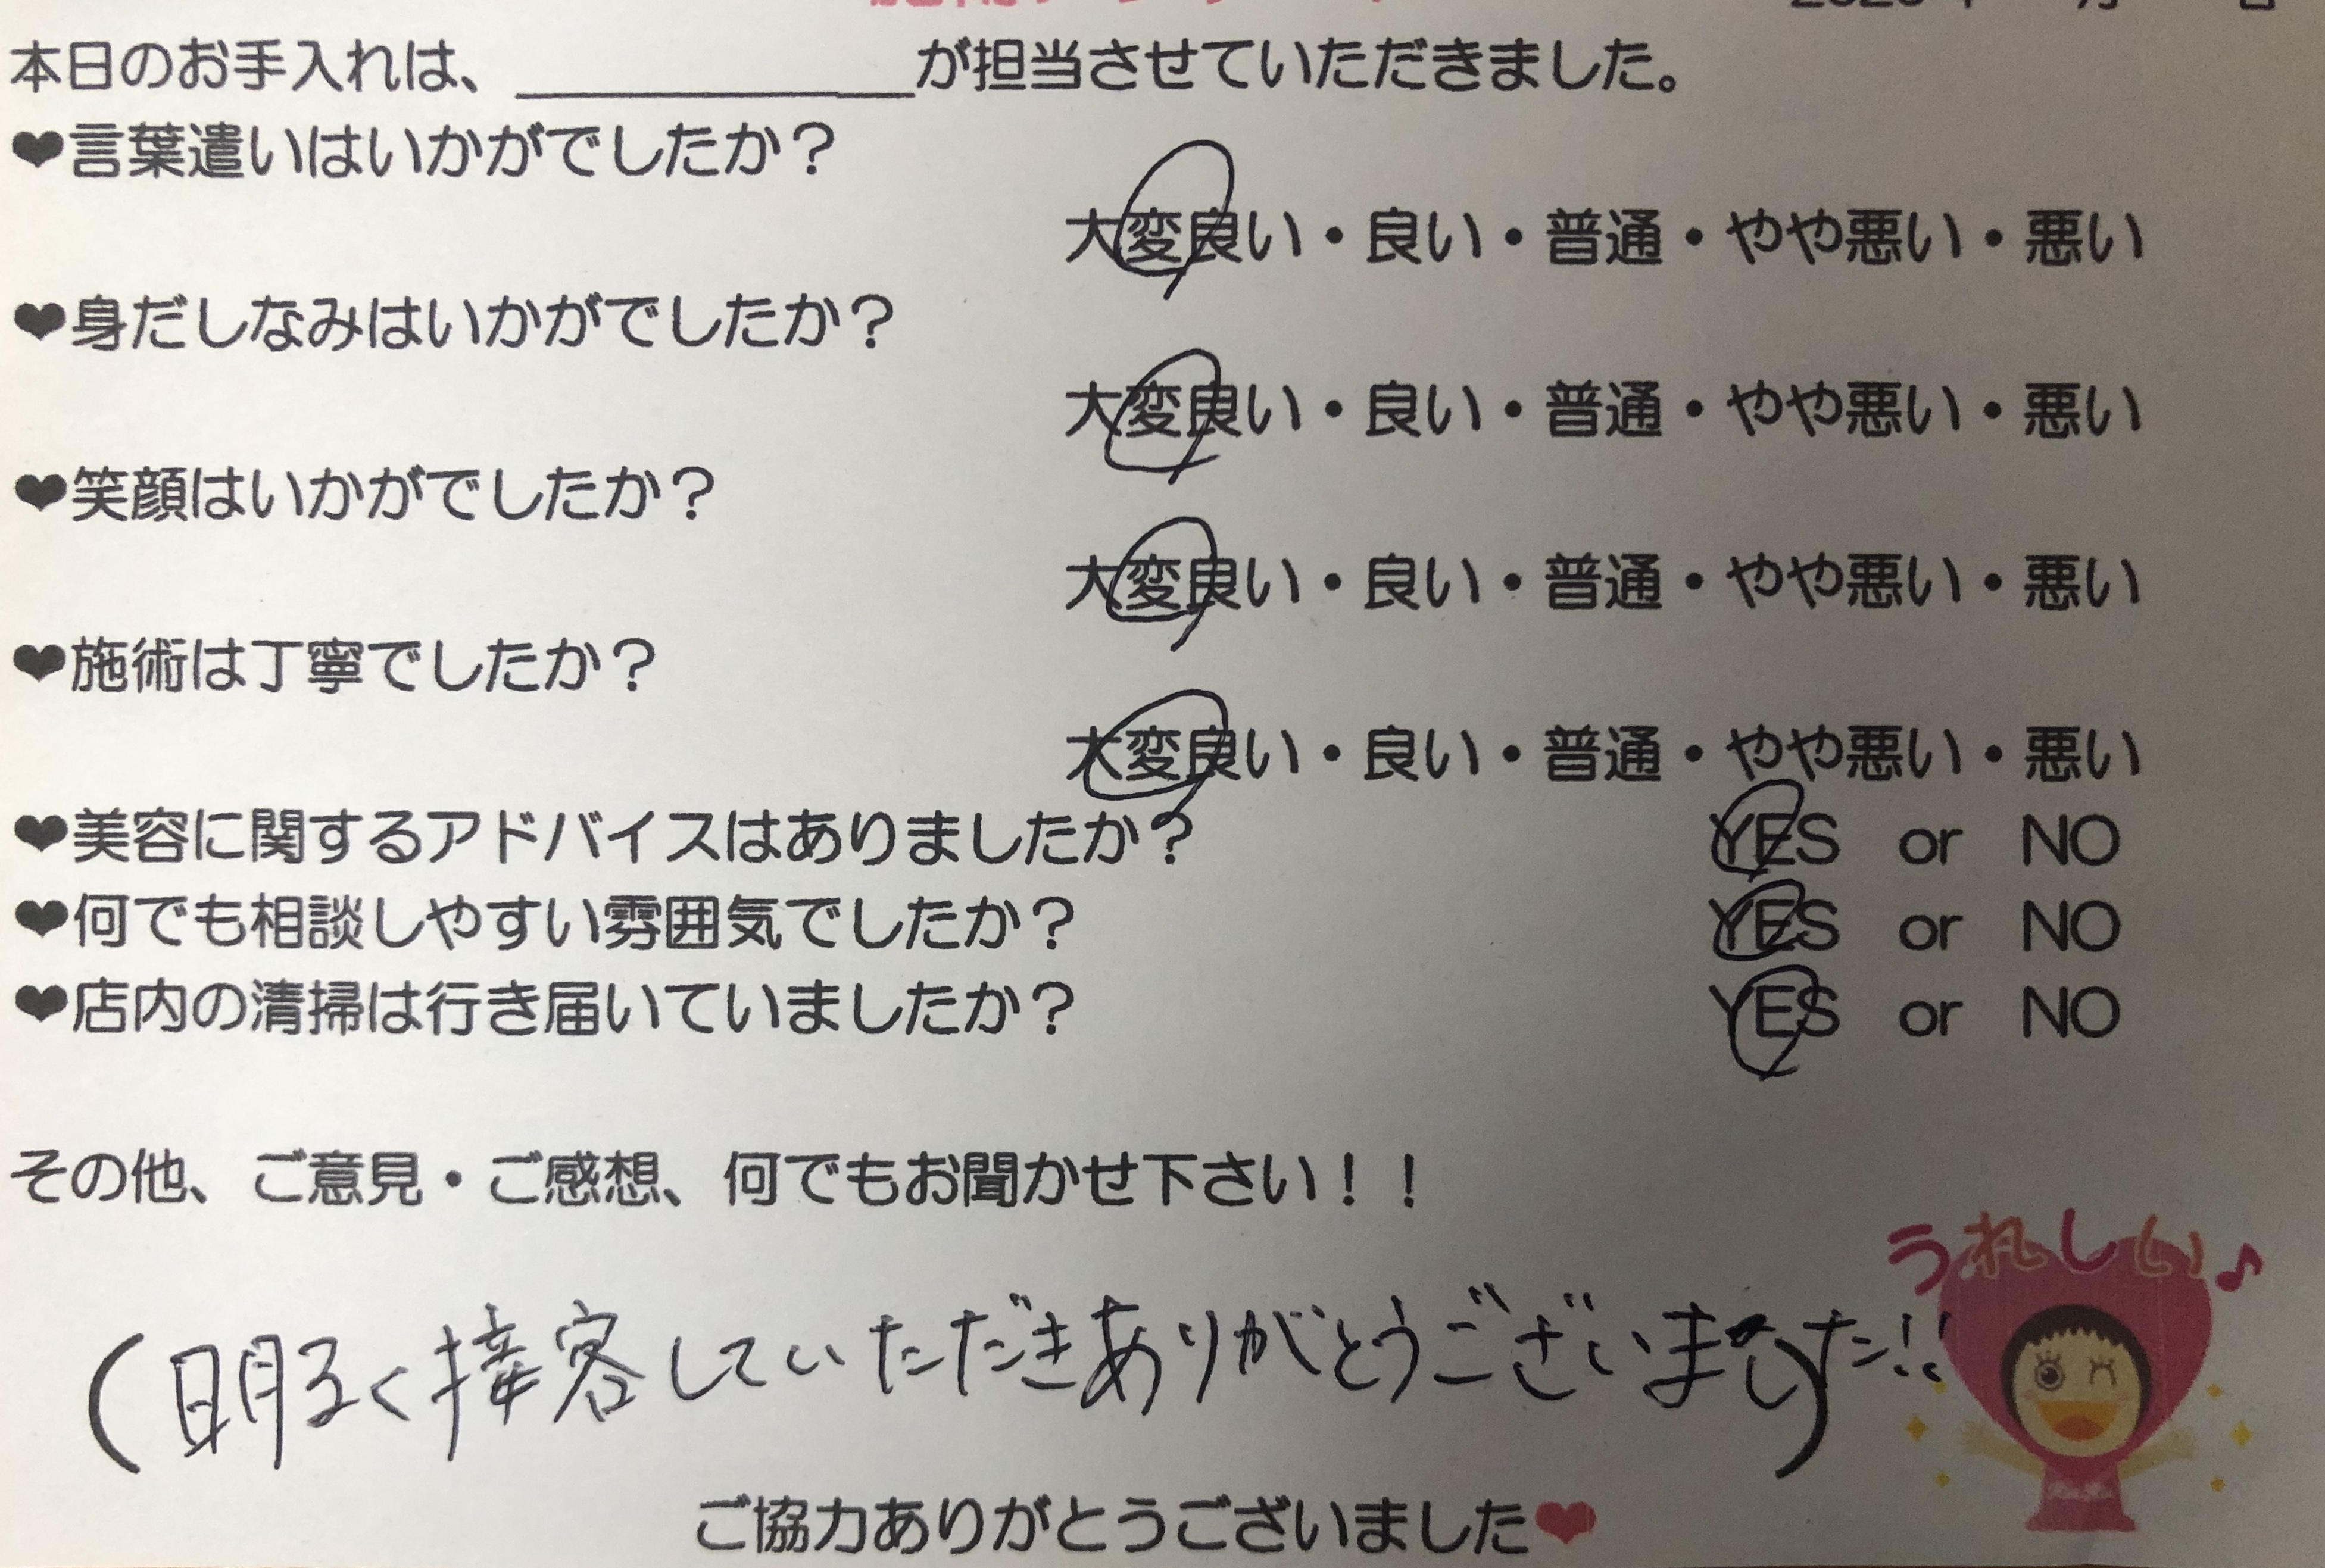 本日のお手入れは、____________が担当させていただきました。
❤言葉遣いはいかがでしたか？
大変良い・良い・普通・やや悪い・悪い
❤身だしなみはいかがでしたか？
大変良い・良い・普通・やや悪い・悪い
❤笑顔はいかがでしたか？
大変良い・良い・普通・やや悪い・悪い
❤施術は丁寧でしたか？
大変良い・良い・普通・やや悪い・悪い
❤美容に関するアドバイスはありましたか？ YES or NO
❤何でも相談しやすい雰囲気でしたか？ YES or NO
❤店内の清掃は行き届いていましたか？ YES or NO
その他、ご意見・ご感想、何でもお聞かせ下さい！！
うれしい♪
(明るく接客していただきありがとうございました!!)
ご協力ありがとうございました❤